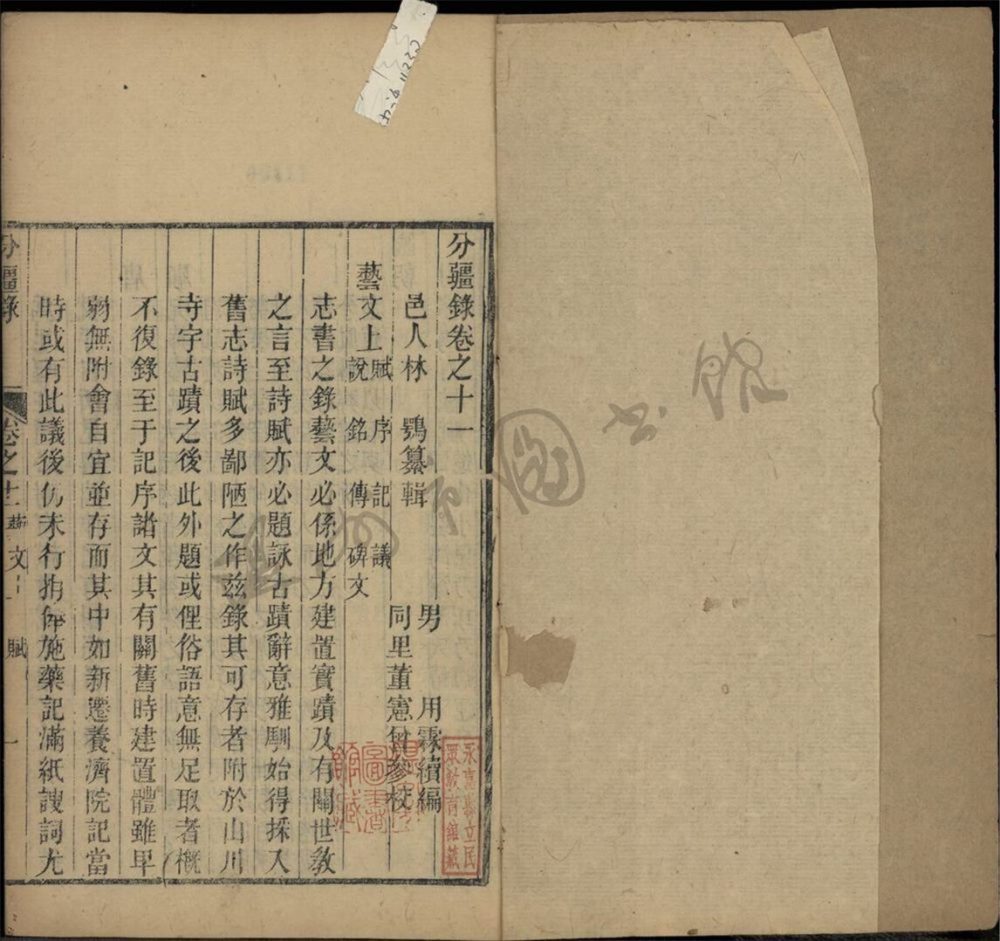 分疆錄卷之十一
邑人林　鶚纂輯　男　用霖續編
同里董憲曾參校
藝文上　賦　序　記　議
說　銘　傳　碑文
志書之錄藝文必係地方建置實蹟及有關世教
之言至詩賦亦必題詠古蹟辭意雅馴始得採入
舊志詩賦多鄙陋之作茲錄其可存者附於山川
寺宇古蹟之後此外題或俚俗語意無足取者概
不復錄至于記序諸文其有關舊時建置體雖卑
弱無附會自宜並存而其中如新遷養濟院記當
時或有此議後仍未行施藥記滿紙諛詞尤
分疆錄　卷之十一　藝文上　賦　一
永嘉縣立民
眾教育館藏
溫州市圖書館